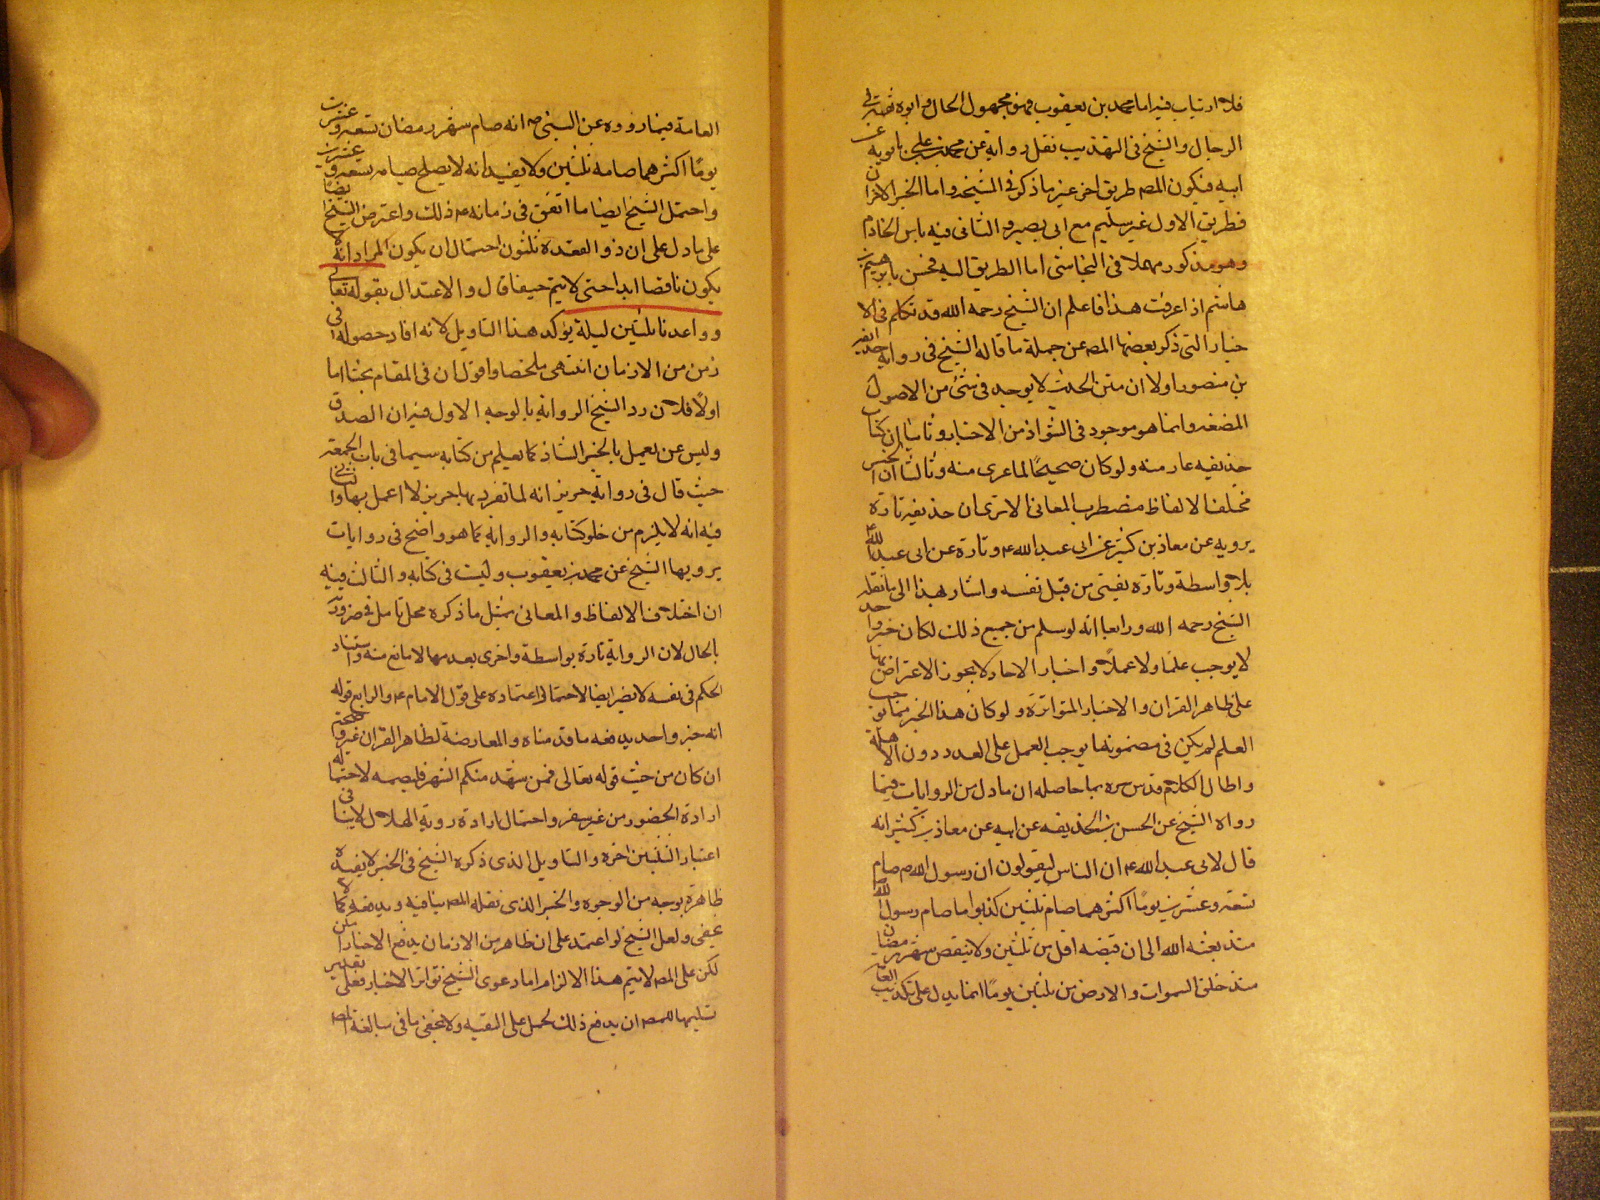 فلا ارتياب فيه اما محمد بن يعقوب فهو مجهول الحال وابوه ثقة في
الرجال والشيخ في التهذيب نقل رواية عن محمد بن علي بابويه عن
ابيه فيكون للمصـ طريق اخر غير ما ذكر في المشيخه واما الخبر الاخران
فطريق الاول غير سليم مع ابي بصير والثاني فيه ياسر الخادم
وهو مذكور مهملا في النجاشي اما الطريق اليه فحسن بابرهيم بن
هاشم اذا عرفت هذا فاعلم ان الشيخ رحمه الله قد تكلم في الا
خبار التي ذكر بعضها المصـ عن جملة ما قاله الشيخ في رواية حذيفة
بن منصور اولا ان متن الحديث لا يوجد في شئ من الاصول
المصنفه وانما هو موجود في الشواذ من الاخبار وثانيا ان كتاب
حذيفه عار منه ولو كان صحيحا لما عرى منه وثالثا ان الخبر
مختلف الالفاظ مضطرب المعاني الا ترى ان حذيفه تارة
يرويه عن معاذ بن كثير عن ابي عبد الله ع وتارة عن ابي عبد الله
بلا واسطة وتارة يفتي من قبل نفسه واشار بهذا الى ما نقله
الشيخ رحمه الله ورابعا انه لو سلم من جميع ذلك لكان خبرا واحد
لا يوجب علما ولا عملا واخبار الاحاد لا يجوز الاعتراض بها
على ظاهر القران والاخبار المتواترة ولو كان هذا الخبر مما يوجب
العلم لم يكن في مضمونه ما يوجب العمل على العدد دون الاهلة
واطال الكلام قدس سره بما حاصله ان ما دل من الروايات فيما
رواه الشيخ عن الحسن بن حذيفه عن ابيه عن معاذ بن كثير انه
قال لابي عبد الله ع ان الناس ليقولون ان رسول الله ص صام
تسعة وعشرين يومًا اكثر مما صام ثلثين كذبوا ما صام رسول الله
منذ بعثه الله الى ان قبضه اقل من ثلثين ولا ينقص شهر رمضان
منذ خلق السموات والارض من ثلثين يومًا انما يدل على تكذيب العامة
العامة فيما رووه عن النبي ص انه صام شهر رمضان تسعة وعشرين
يومًا اكثر مما صامه ثلثين ولا يفيد انه لا يصلح صيامه تسعة وعشرين
واحتمل الشيخ ايضا ما اتفق في زمانه ع ذلك واعترض الشيخ ايضًا
على ما دل على ان ذو القعدة ثلثون احتمال ان يكون المراد انه لا
يكون ناقصا ابدا حتى لا يتم حيفا قال والاعتدال بقوله تعالى
وواعدنا ثلثين ليلة يؤكد هذا التاويل لانه افاد حصوله في
زمن من الازمان انتهى ملخصا واقول ان في المقام بحثا اما
اولًا فلان رد الشيخ الرواية بالوجه الاول فيه ان الصدوق
وليس عن يعمل بالخبر الشاذ كما يعلم من كتابه سيما في باب الجمعة
حيث قال في رواية حريز انه لما تفرد بها حريز لا اعمل بها والثاني
فيه انه لا يلزم من خلو كتابه والرواية كما هو واضح في روايات
يرويها الشيخ عن محمد بن يعقوب وليت في كتابه والثالث فيه
ان اختلاف الالفاظ والمعاني بمثل ما ذكره محل تامل في ضرورته
بالحال لان الرواية تارة بواسطة واخرى بعدمها لا مانع منه واستناد
الحكم في نفسه لا يضر ايضا لاحتمال اعتماده على قول الامام ع والرابع قوله
انه خبر واحد يدفعه ما قدمناه والمعارضة لظاهر القران غير واضحة
ان كان من حيث قوله تعالى فمن شهد منكم الشهر فليصمه لاحتماله
ارادة الحضور من غير سفر واحتمال ارادة روية الهلال لا ينافي
اعتبار الثلثين اخره والتاويل الذي ذكره الشيخ في الخبر لا يفيده
ظاهره بوجه من الوجوه والخبر الذي نقله المصـ ينافيه ويدفعه كما لا
يخفى ولعل الشيخ لو اعتمد على ان ظاهر من الازمان يدفع الاخبار امكن
لكن على المصـ لا يتم هذا الالزام اما دعوى الشيخ تواتر الاخبار فعلى تقدير
تسليمها للمصـ ان يدفع ذلك لحمل على التقيه ولا يخفى ما في مبالغة المصـ